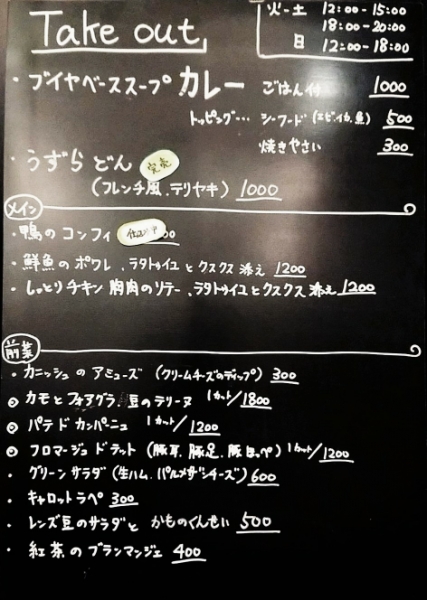 Take out
火-土 12:00-15:00
18:00-20:00
日 12:00-18:00
・ブイヤベーススープカレー ごはん付 1000
トッピング… シーフード(エビ.イカ.魚) 500
焼きやさい 300
・うずらどん 完売
(フレンチ風、テリヤキ) 1000
メイン
・鴨のコンフィ 00
・鮮魚のポワレ、ラタトゥイユとクスクス添え 1200
・しっとりチキン胸肉のソテー、ラタトゥイユとクスクス添え 1200
前菜
・カニッシュのアミューズ (クリームチーズのディップ) 300
◎カモとフォアグラ、豆のテリーヌ 1カット/1800
◎パテドカンパーニュ 1カット/1200
◎フロマージュドテット(豚耳、豚足、豚ほっぺ) 1カット/1200
・グリーンサラダ(生ハム、パルメザンチーズ) 600
・キャロットラペ 300
・レンズ豆のサラダと かものくんせい 500
・紅茶のブランマンジェ 400